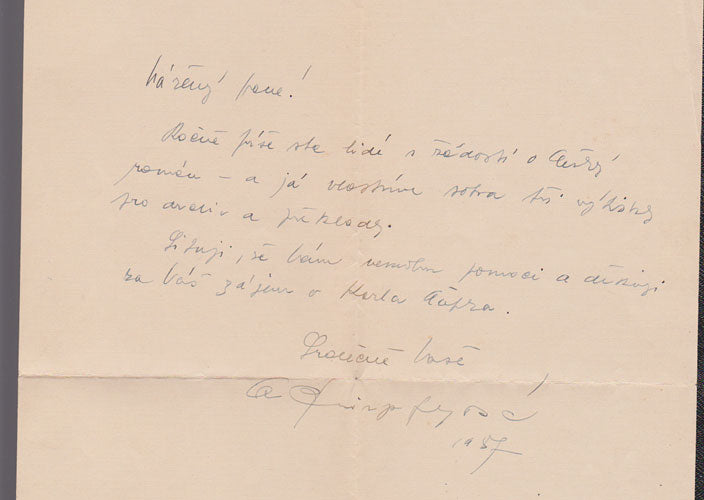 Vážený pane!
Ročně píše sto lidí s žádostí o Český
román – a já vlastním sotva tři výtisky
pro archiv a překlady.
Lituji, že Vám nemohu pomoci a děkuji
za Váš zájem o Karla Čapka.
Srdečně Vaše
1957